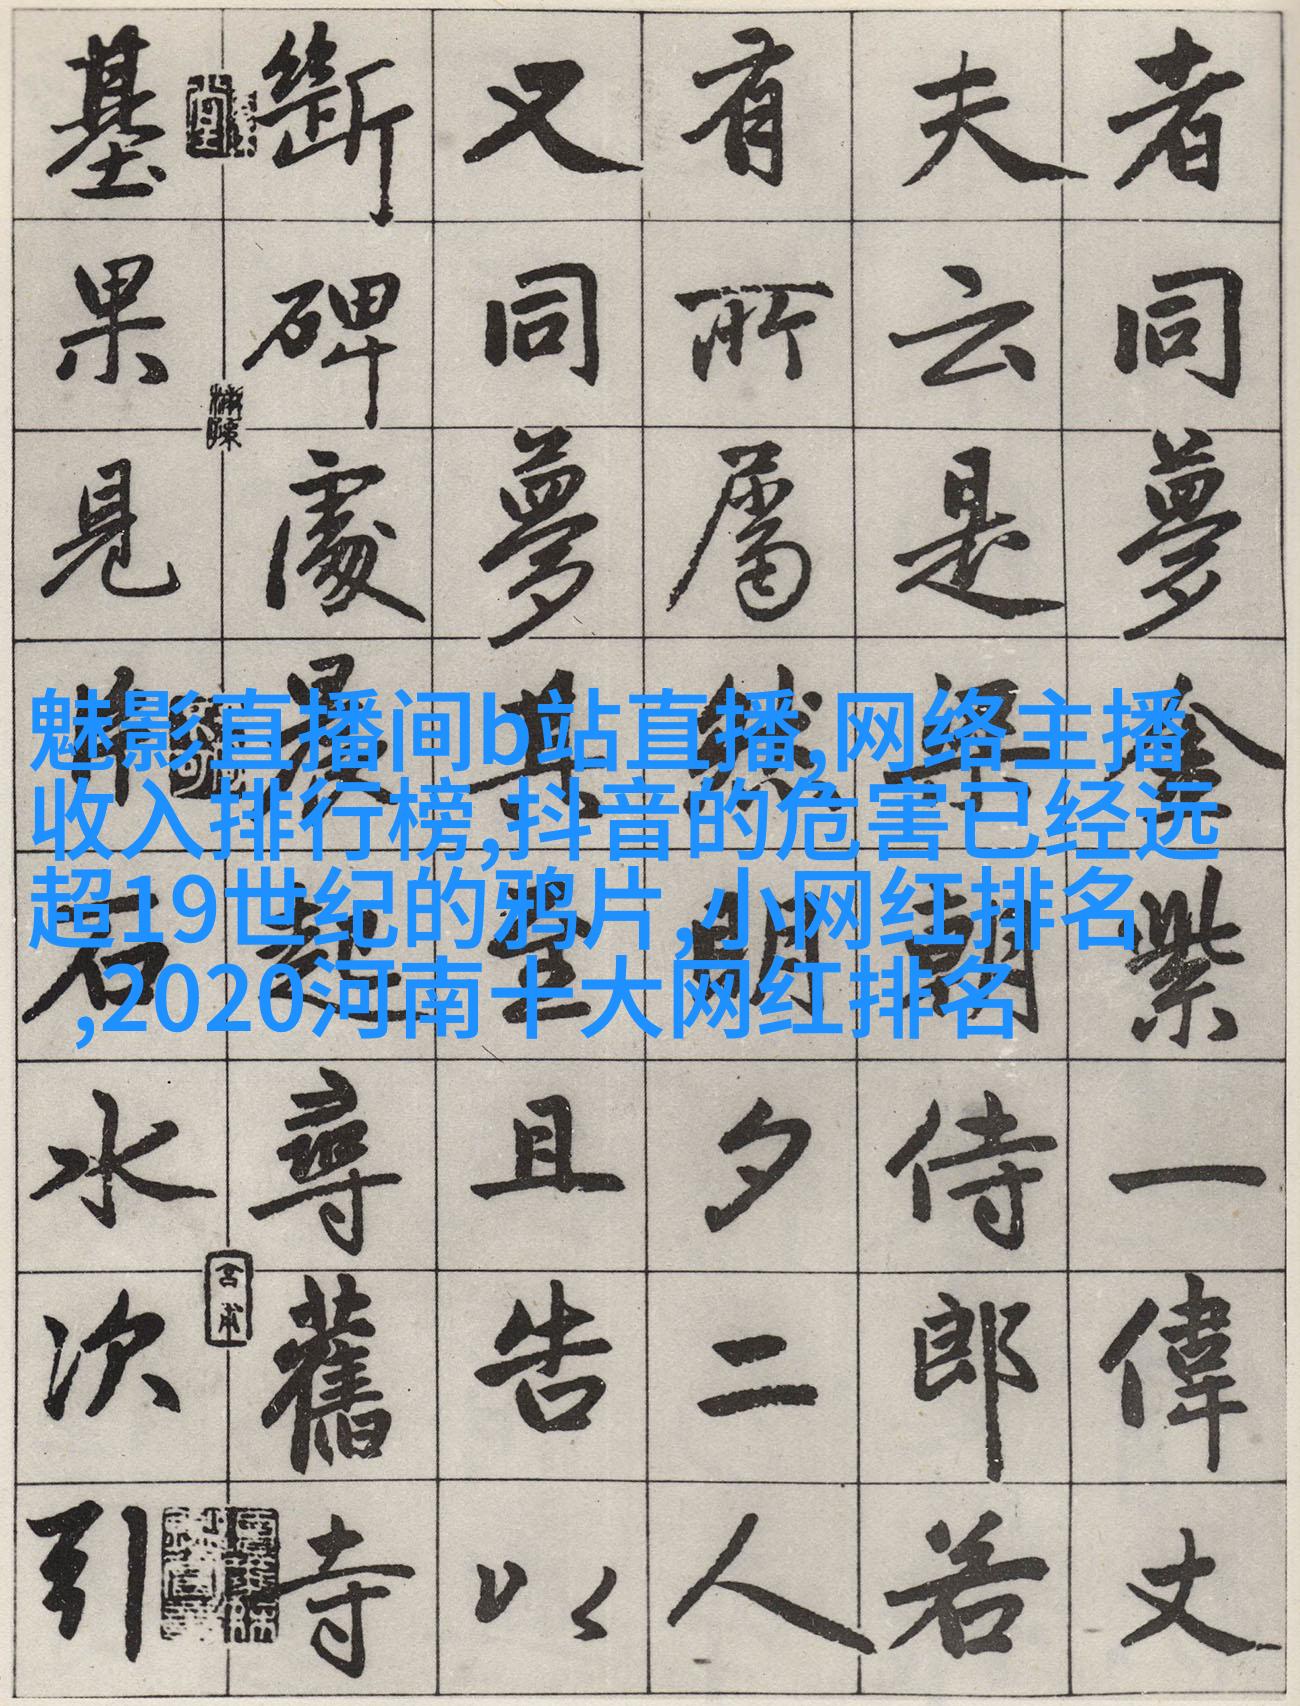 者同夢金紫一偉丈
夫云是朝侍郎若
有所屬明夕二人
又同夢且告以
斷碑處晨起尋舊寺
基果見石水次引
魅影直播间b站直播,网络主播
收入排行榜,抖音的危害已经远
超19世纪的鸦片,小网红排名
,2020河南十大网红排名